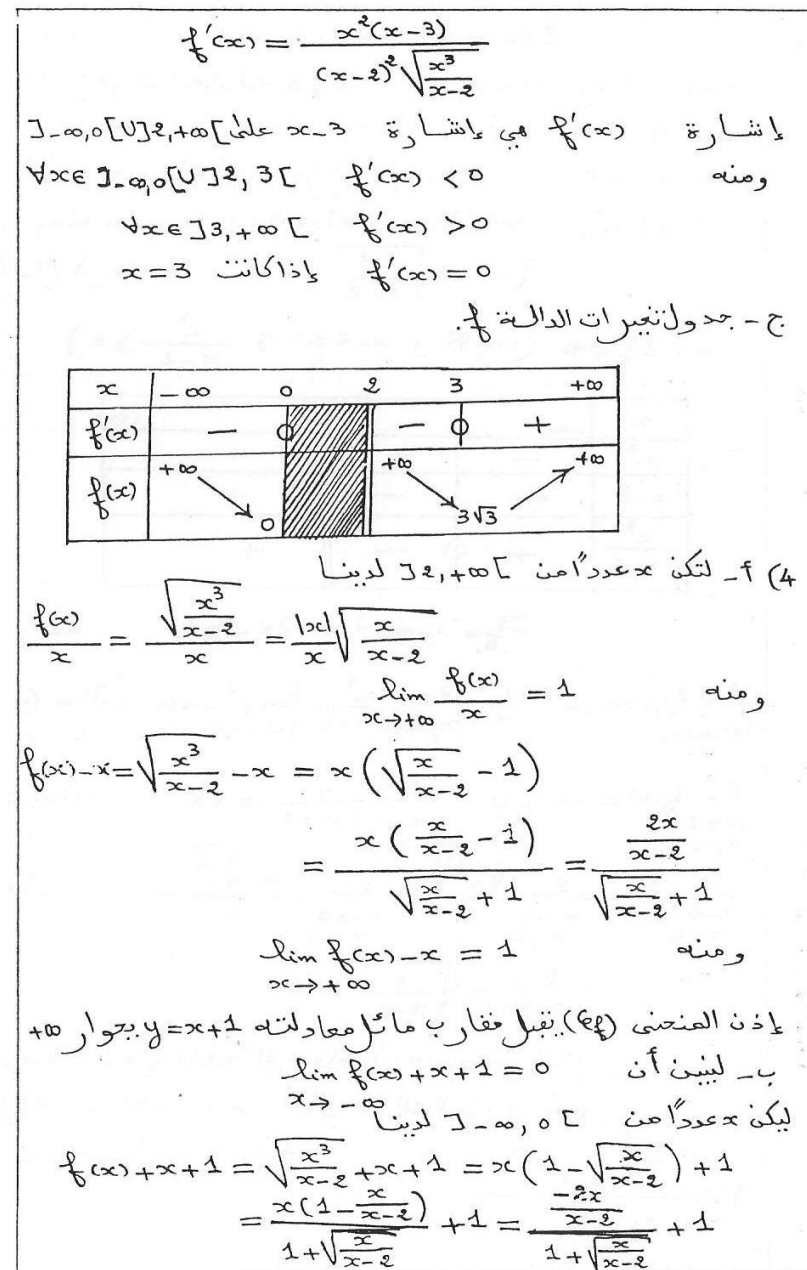 f'(x) = \frac{x^2(x-3)}{(x-2)^2\sqrt{\frac{x^3}{x-2}}}
إشارة f'(x) هي إشارة x-3 على ]-∞,0[U]2,+∞[
ومنه ∀x∈ ]-∞,0[U]2,3[ f'(x) < 0
∀x∈ ]3,+∞[ f'(x) > 0
f'(x) = 0 إذا كانت x = 3
ج - جدول تغيرات الدالة f.
x -∞ 0 2 3 +∞
f'(x) - 0 - 0 +
f(x) +∞ 0 +∞ 3√3 +∞
4) أ- لتكن x عدداً من ]2,+∞[ لدينا
\frac{f(x)}{x} = \frac{\sqrt{\frac{x^3}{x-2}}}{x} = \frac{|x|}{x}\sqrt{\frac{x}{x-2}}
ومنه \lim_{x→+∞} \frac{f(x)}{x} = 1
f(x)-x = \sqrt{\frac{x^3}{x-2}} - x = x\left(\sqrt{\frac{x}{x-2}} - 1\right)
= \frac{x\left(\frac{x}{x-2} - 1\right)}{\sqrt{\frac{x}{x-2}} + 1} = \frac{\frac{2x}{x-2}}{\sqrt{\frac{x}{x-2}} + 1}
ومنه \lim_{x→+∞} f(x)-x = 1
إذن المنحنى (Cf) يقبل مقارب مائل معادلته y=x+1 بجوار +∞
ب- لنبين أن \lim_{x→-∞} f(x)+x+1 = 0
ليكن x عدداً من ]-∞,0[ لدينا
f(x)+x+1 = \sqrt{\frac{x^3}{x-2}} + x+1 = x\left(1-\sqrt{\frac{x}{x-2}}\right)+1
= \frac{x\left(1-\frac{x}{x-2}\right)}{1+\sqrt{\frac{x}{x-2}}} + 1 = \frac{\frac{-2x}{x-2}}{1+\sqrt{\frac{x}{x-2}}} + 1